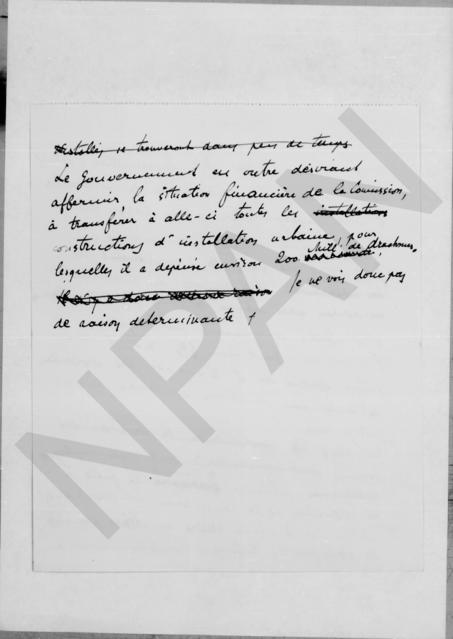 installés se trouveront dans peu de temps
Le Gouvernement en outre désirant
affermir la situation financière de la Comission,
à transférer à elle-ci toutes les installations
constructions d'installation urbaine, pour
lesquelles il a depensé environ 200 Mill. de drachmes.
Je ne vois donc pas
de raison determinante +
NPAN